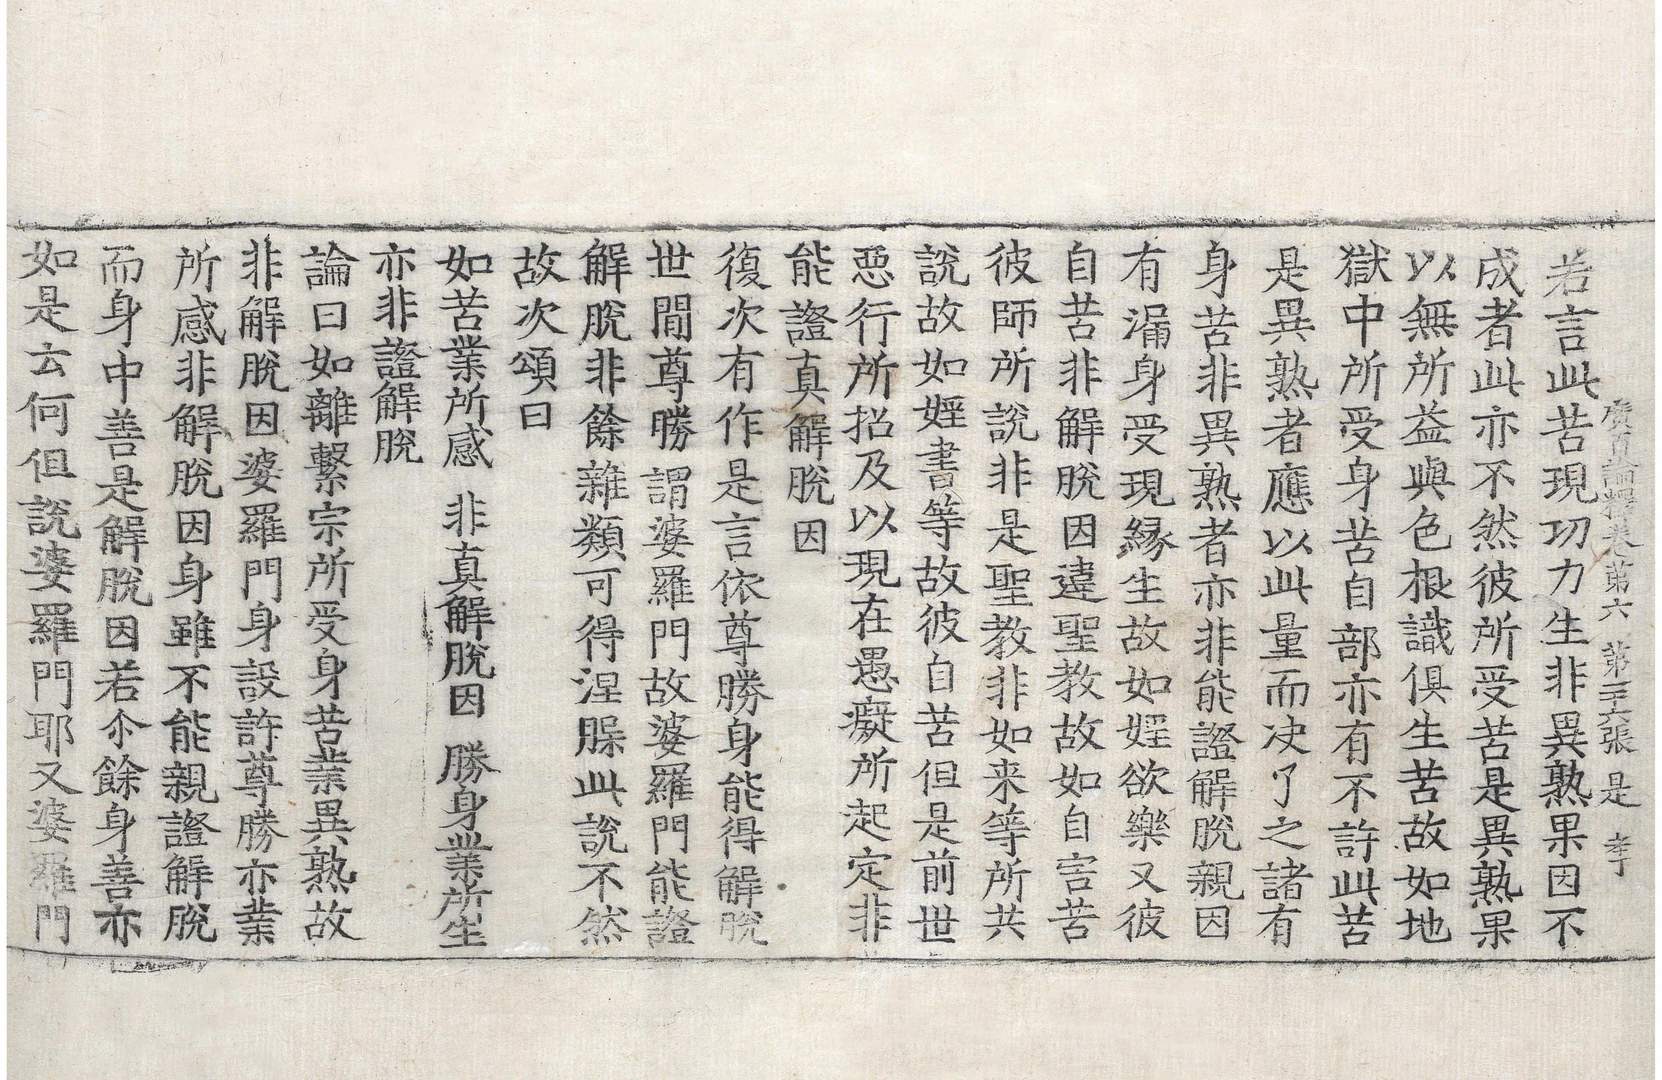 廣百論釋卷第六 第二十六張 是
若言此苦現功力生非異熟果因不
成者此亦不然彼所受苦是異熟果
以無所益與色根識俱生苦故如地
獄中所受身苦自部亦有不許此苦
是異熟者應以此量而决了之諸有
身苦非異熟者亦非能證解脫親因
有漏身受現緣生故如婬欲樂又彼
自苦非解脫因違聖教故如自害苦
彼師所說非是聖教非如来等所共
說故如婬書等故彼自苦但是前世
惡行所招及以現在愚癡所起定非
能證真解脫因
復次有作是言依尊勝身能得解脫
世間尊勝謂婆羅門故婆羅門能證
解脫非餘雜類可得涅槃此說不然
故次頌曰
如苦業所感 非真解脫因 勝身業所生
亦非證解脫
論曰如離繫宗所受身苦業異熟故
非解脫因婆羅門身設許尊勝亦業
所感非解脫因身雖不能親證解脫
而身中善是解脫因若尒餘身善亦
如是云何但說婆羅門耶又婆羅門